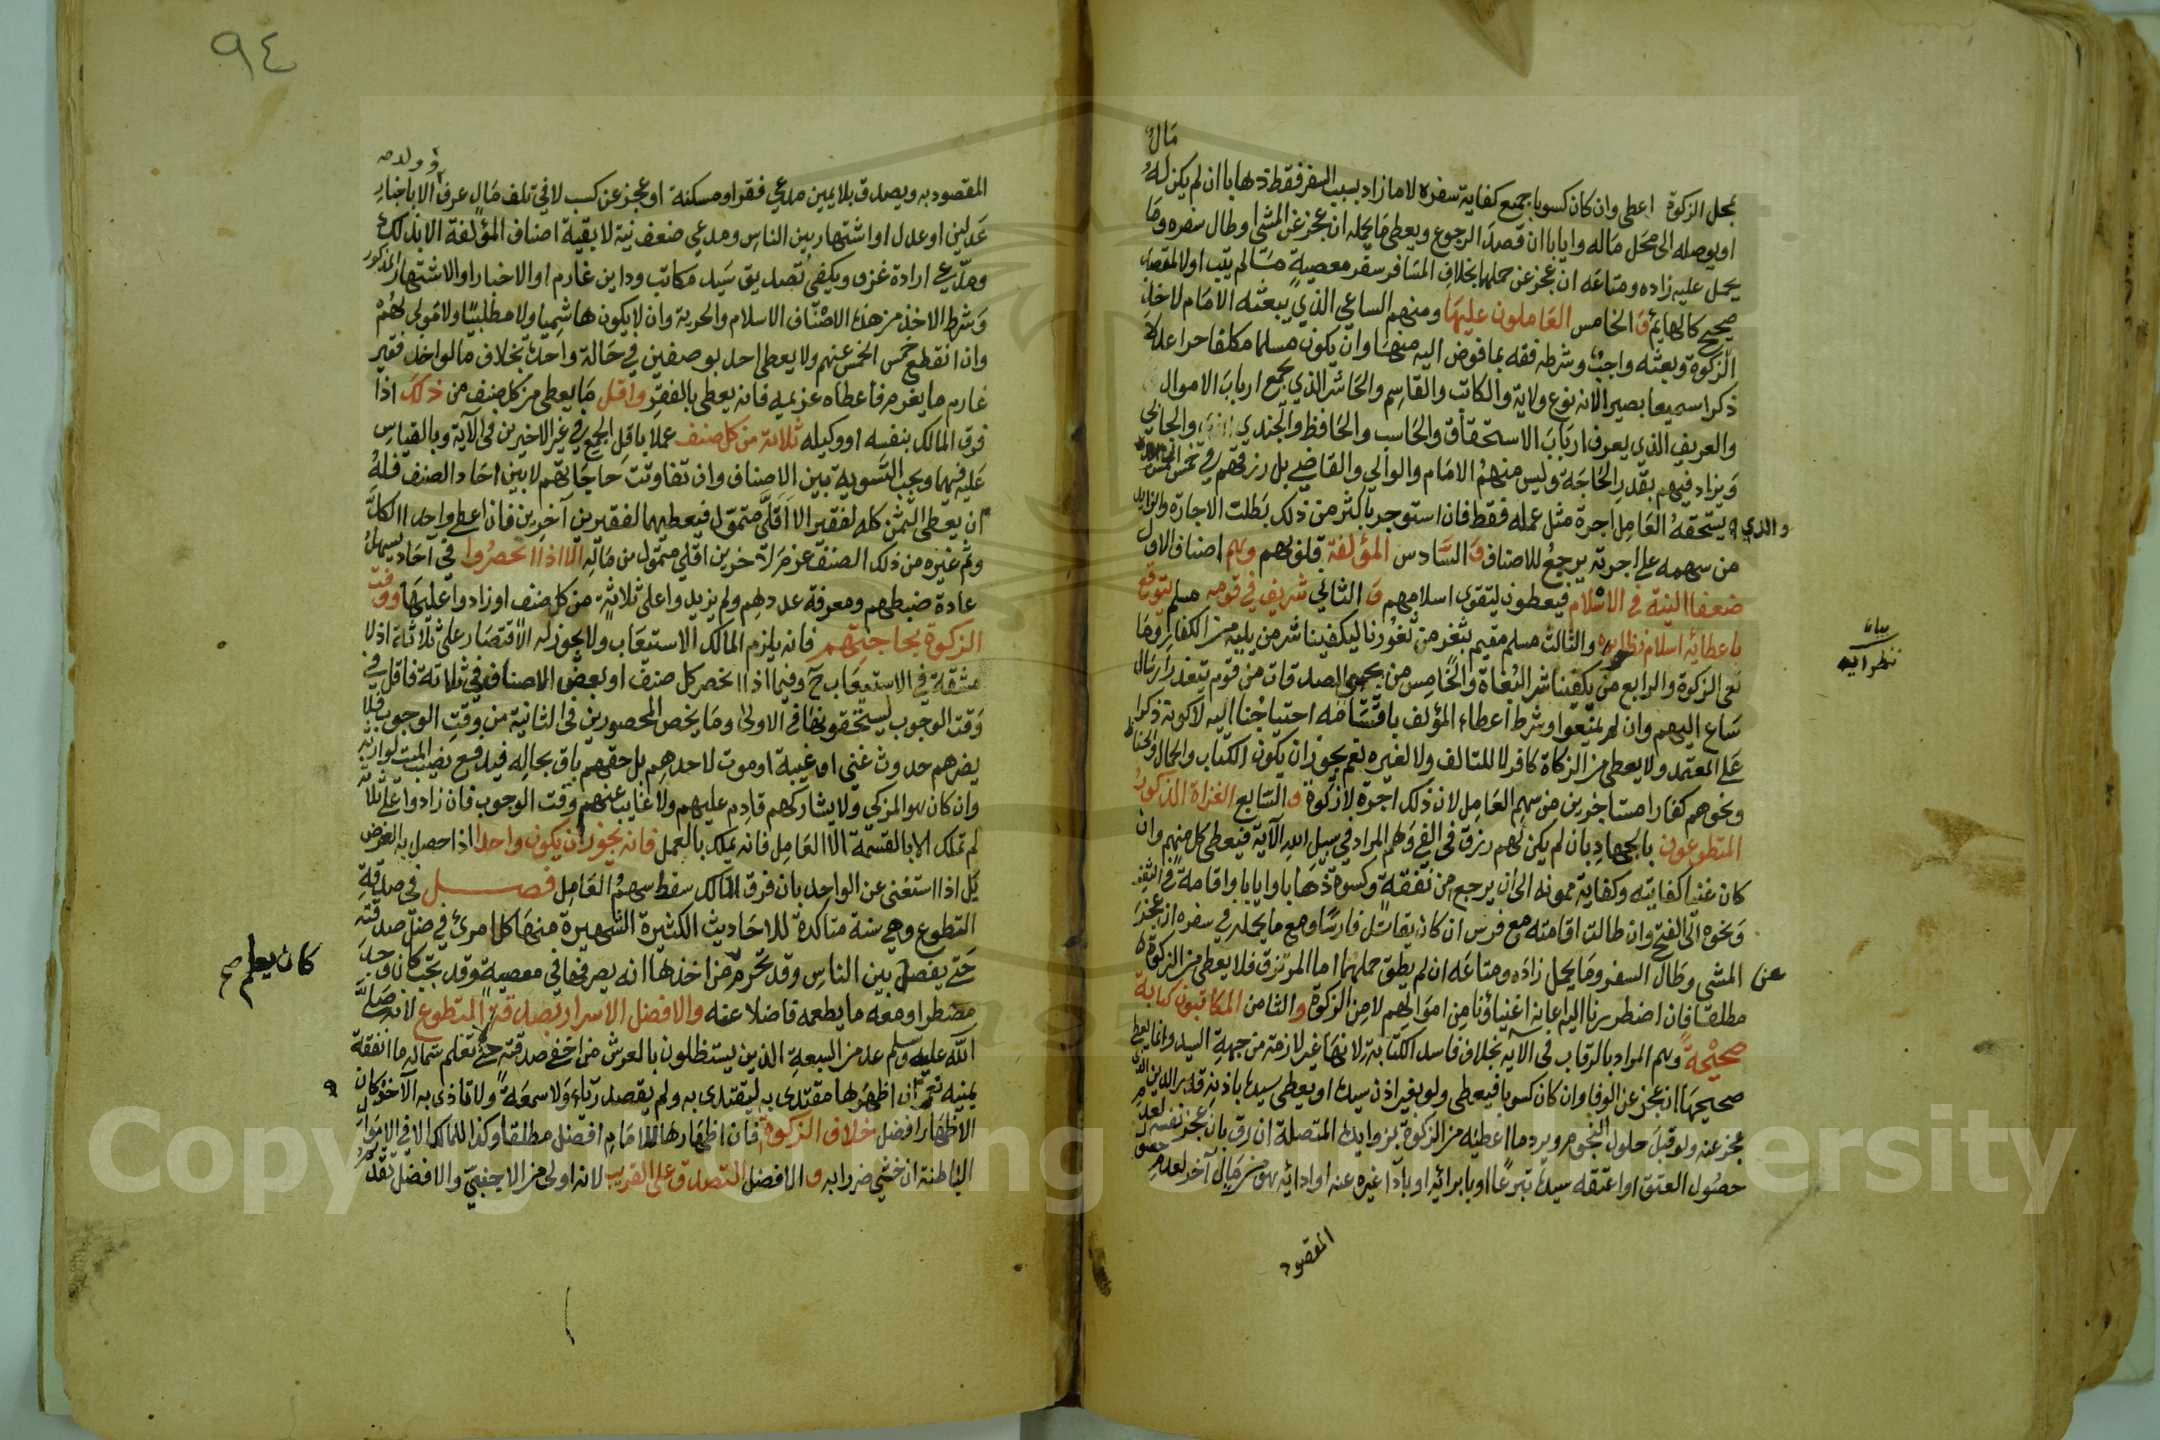 مال
بمحل الزكوة اعطى وان كان كسوبا جميع كفاية سفره لا ما زاد بسبب السفر فقط ذهابا ان لم يكن له
او يوصله الى محل ماله وايابا ان قصد الرجوع ويعطى ما يحمله ان عجز عن المشي او طال سفره وما
يحمل عليه زاده ومتاعه ان عجز عن حملها بخلاف المسافر سفر معصية ما لم يتب او لا لمقصد
صحيح كالهايم و الخامس العاملون عليها ومنهم الساعي الذي يبعثه الامام لاخذ
الزكوة وبعثه واجب وشرطه فقه بما فوض اليه منها وان يكون مسلما مكلفا حرا عدلا
ذكرا سميعا بصيرا لانه نوع ولاية والكاتب والقاسم والحاشر الذي يجمع ارباب الاموال
والعريف الذي يعرف ارباب الاستحقاق والحاسب والحافظ والجندي والجابي
ويزاد فيهم بقدر الحاجة وليس منهم الامام والوالي والقاضي بل رزقهم في خمس الخمس
والذي يستحقه العامل اجرة مثل عمله فقط فان استوجر باكثر من ذلك بطلت الاجارة والزايد
من سهمه على اجرته يرجع للاصناف و السادس المؤلفة قلوبهم وهم اصناف الاول
ضعفا النية في الاسلام فيعطون ليتقوى اسلامهم و الثاني شريف في قومه مسلم يتوقع
باعطائه اسلام نظرايه والثالث مسلم مقيم بثغر من ثغورنا ليكفينا شر من يليه من الكفار وما
بيان
نظرايه
نعي الزكوة والرابع من يكفينا شر البغاة والخامس من يجبي الصدقات من قوم يتعذر ارسال
ساع اليهم وان لم يمنعوا وشرط اعطاء المؤلف باقسامه احتياجنا اليه لا كونه ذكرا
على المعتمد ولا يعطى من الزكاة كافر لا للتالف ولا لغيره نعم يجوز ان يكون الكيال والحمال والحافظ
ونحوهم كفارا مستاجرين من سهم العامل لان ذلك اجرة لا زكوة و السابع الغزاة الذكور
المتطوعون بالجهاد بان لم يكن لهم رزق في الفي وهم المراد في سبيل الله الآية فيعطى كل منهم وان
كان غنيا كفايته وكفاية ممونه الى ان يرجع من نفقة وكسوة ذهابا وايابا واقامة في الثغر
ونحوه الى الفتح وان طالت اقامته مع فرس ان كان يقاتل فارسا ومع ما يحمله في سفره ان عجز
عن المشي وطال السفر وما يحمل زاده ومتاعه ان لم يطق حملهما اما المرتزق فلا يعطى من الزكوة
مطلقا فان اضطررنا اليه اعانه اغنياؤنا من اموالهم لا من الزكوة والثامن المكاتبون كتابة
صحيحة وهم المراد بالرقاب في الآيه بخلاف فاسد الكتابة لانها غير لازمة من جهة السيد وانما يعطى
صحيحها ان عجز عن الوفا وان كان كسوبا فيعطى ولو بغير اذن سيده او يعطى سيده باذنه قدر الدين الذي
عجز عنه ولو قبل حلول النجوم ويرد ما اعطيه من الزكوة بزوايده المتصلة ان رق بان عجز نفسه لعدم
حصول العتق او اعتقه سيده تبرعا او بابرائه او باداء غيره عنه او ادائه هو من مال آخر لعدم حصول
المقصود
٩٤
وولد صح
المقصود به ويصدق بلا يمين مدعي فقر او مسكنة او عجز عن كسب لا في تلف مال عرف الا باخبار
عدلين او عدل او اشتهار بين الناس ومدعي ضعف نية لا بقية اصناف المؤلفة الا بذلك
ومدعي ارادة غزو ويكفي تصديق سيد مكاتب وداين غارم او الاخبار او الاشتهار المذكور
وشرط الاخذ من هذه الاصناف الاسلام والحرية وان لا يكون هاشميا ولا مطلبيا ولا مولى لهم
وان انقطع خمس الخمس عنهم ولا يعطى احد بوصفين في حالة واحدة بخلاف ما لو اخذ فقير
غارم ما يغرم فاعطاه غريمه فانه يعطى بالفقر واقل ما يعطى من كل صنف من ذلك اذا
فرق المالك بنفسه او وكيله ثلاثة من كل صنف عملا باقل الجمع في غير الاخيرين في الآية وبالقياس
عليه فيهما ويجب التسوية بين الاصناف وان تفاوتت حاجاتهم لا بين احاد الصنف فله
ان يعطي الثمن كله لفقير الا اقل متمول فيعطيهما لفقيرين آخرين فان اعطى واحدا الكل
وثم غيره من ذلك الصنف غرم للآخرين اقل متمول من ماله الا اذا انحصروا في احاد يسهل
عادة ضبطهم ومعرفة عددهم ولم يزيدوا على ثلاثة من كل صنف او زادوا عليها ووفت
الزكوة بحاجتهم فانه يلزم المالك الاستعاب ولا يجوز له الاقتصار على ثلاثة اذ لا
مشقة في الاستعاب ح وفيما اذا انحصر كل صنف او بعض الاصناف في ثلاثة فاقل في
وقت الوجوب يستحقونها في الاولى وما يخص المحصورين في الثانية من وقت الوجوب فلا
يضرهم حدوث غنى او غيبة او موت لاحدهم بل حقهم باق بحاله فيدفع نصيب الميت لوارثه
وان كان هو المزكي ولا يشاركهم قادم عليهم ولا غايب عنهم وقت الوجوب فان زادوا على ثلاثة
لم تملك الا بالقسمة الا العامل فانه يملك بالعمل فانه يجوز ان يكون واحدا اذا حصل به الغرض
بل اذا استغنى عن الواحد بان فرق المالك سقط سهم العامل فصل في صدقة
التطوع وهي سنة متاكدة للاحاديث الكثيرة الشهيرة منها كل امرئ في ظل صدقته
حتى يفصل بين الناس وقد تحرم من اخذها انه يصرفها في معصية وقد تجب كان وجد
كان يعلم صح
مضطرا ومعه ما يطعمه فاضلا عنه والافضل الاسرار بصدقة المتطوع لانه صلى
الله عليه وسلم عد من السبعة الذين يستظلون بالعرش من اخفى صدقته حتى لا تعلم شماله ما انفقة
يمينه نعم ان اظهرها مقتدى به ليقتدى به ولم يقصد رياء ولا سمعة ولا تاذى به الآخذ كان
الاظهار افضل خلاف الزكوة فان اظهارها للامام افضل مطلقا وكذا للمالك الا في الاموال
الباطنة ان خشي ضررا به و الافضل التصدق على القريب لانه اولى من الاجنبي والافضل تقديم